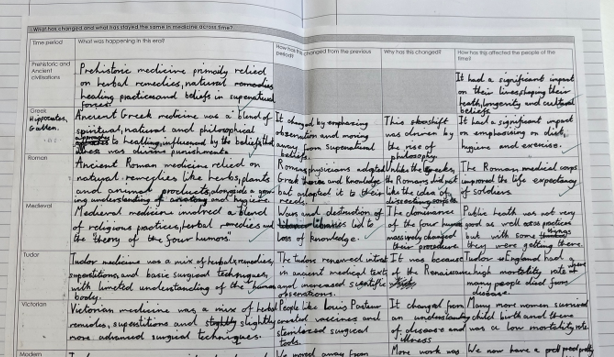 What has changed and what has stayed the same in medicine across time?
Time period
What was happening in this era?
How has this changed from the previous period?
Why has this changed?
How has this affected the people of the time?
Prehistoric and Ancient civilisations
Prehistoric medicine relied
on herbal remedies, natural remedies
healing practices and beliefs in supernatural
forces.
It had a significant impact
on their lives shaping their
health, longevity and cultural
beliefs.
Greek
Hippocrates,
Ancient Greek medicine was a blend of
spiritual, natural and philosophical
to healing, influenced by the belief that
illness was divine punishment.
It changed by
observation and moving
away from supernatural
beliefs.
This
was driven by
the rise of
philosophy.
It had a significant impact
on emphasising on diet,
hygiene and exercise.
Roman
Ancient Roman medicine relied on
natural remedies like herbs, plants
and animal products, alongside a grow-
ing understanding of and hygiene.
Romans physicians adapted
Greek and Knowledge
but adapted it to their
needs.
Unlike the Greeks,
the Romans did not
like the idea of
dissecting
The Roman medical corps
improved the life expectancy
of soldiers.
Medieval
Medieval medicine involved a blend
of religious practices, herbal remedies and
the theory of the four humors.
Wars and destruction of
libraries led to
loss of knowledge.
The dominance
of the four
massively changed
their procedure.
Public health was not very
good as well as
but with some
they were getting there.
Tudor
Tudor medicine was a mix of herbal remedies,
superstitions, and basic surgical techniques,
with limited understanding of the human
body.
The Tudors renewed interest
in ancient medical texts
and increased scientific
observations.
It was because
of the Renaissance
Tudor England had a
high mortality rate
many people died from
disease.
Victorian
Victorian medicine was a mix of herbal
remedies, superstitions and slightly
more advanced surgical techniques.
People like Louis Pasteur
created vaccines and
sterilised surgical
tools
It changed from
an understanding
of disease and
illness
Many more women survived
child birth and there
was a low mortality rate.
Modern
We moved away from
More work was
We now have a